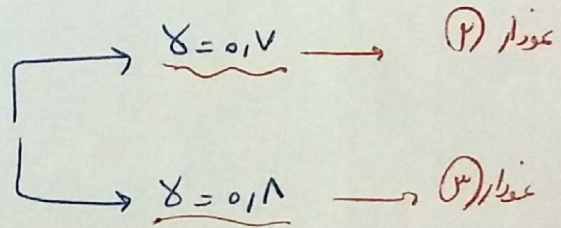 γ = ۰,۷ → نمودار (۲)
γ = ۰,۸ → نمودار (۳)